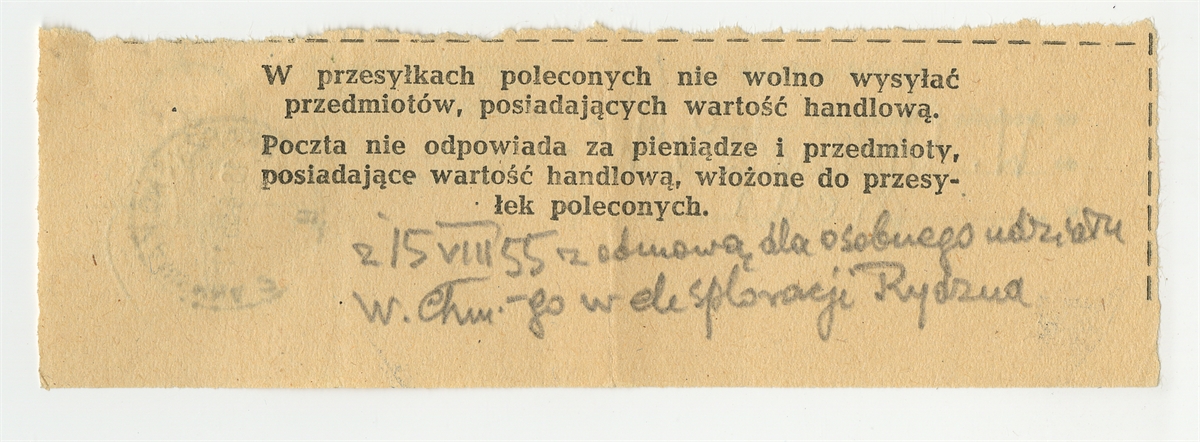 W przesyłkach poleconych nie wolno wysyłać
przedmiotów, posiadających wartość handlową.
Poczta nie odpowiada za pieniądze i przedmioty,
posiadające wartość handlową, włożone do przesy-
łek poleconych.
z 15 VIII 55 z odmową dla osobnego udziału
W. Chm.-go w eksploracji Rydzna